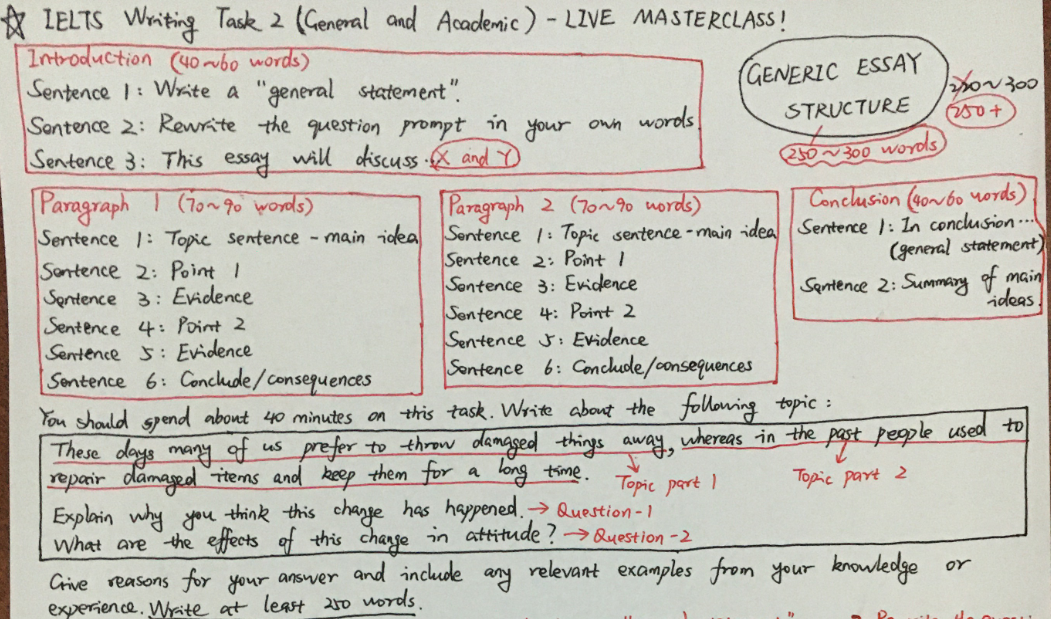 ☆ IELTS Writing Task 2 (General and Academic) - LIVE MASTERCLASS!
Introduction (40~60 words)
Sentence 1: Write a "general statement".
Sentence 2: Rewrite the question prompt in your own words
Sentence 3: This essay will discuss X and Y
GENERIC ESSAY
STRUCTURE
250~300
250+
250~300 words
Paragraph 1 (70~90 words)
Sentence 1: Topic sentence - main idea
Sentence 2: Point 1
Sentence 3: Evidence
Sentence 4: Point 2
Sentence 5: Evidence
Sentence 6: Conclude/consequences
Paragraph 2 (70~90 words)
Sentence 1: Topic sentence - main idea
Sentence 2: Point 1
Sentence 3: Evidence
Sentence 4: Point 2
Sentence 5: Evidence
Sentence 6: Conclude/consequences
Conclusion (40~60 words)
Sentence 1: In conclusion...
(general statement)
Sentence 2: Summary of main
ideas.
You should spend about 40 minutes on this task. Write about the following topic:
These days many of us prefer to throw damaged things away, whereas in the past people used to
repair damaged items and keep them for a long time.
Topic part 1
Topic part 2
Explain why you think this change has happened. → Question-1
What are the effects of this change in attitude? → Question-2
Give reasons for your answer and include any relevant examples from your knowledge or
experience. Write at least 250 words.